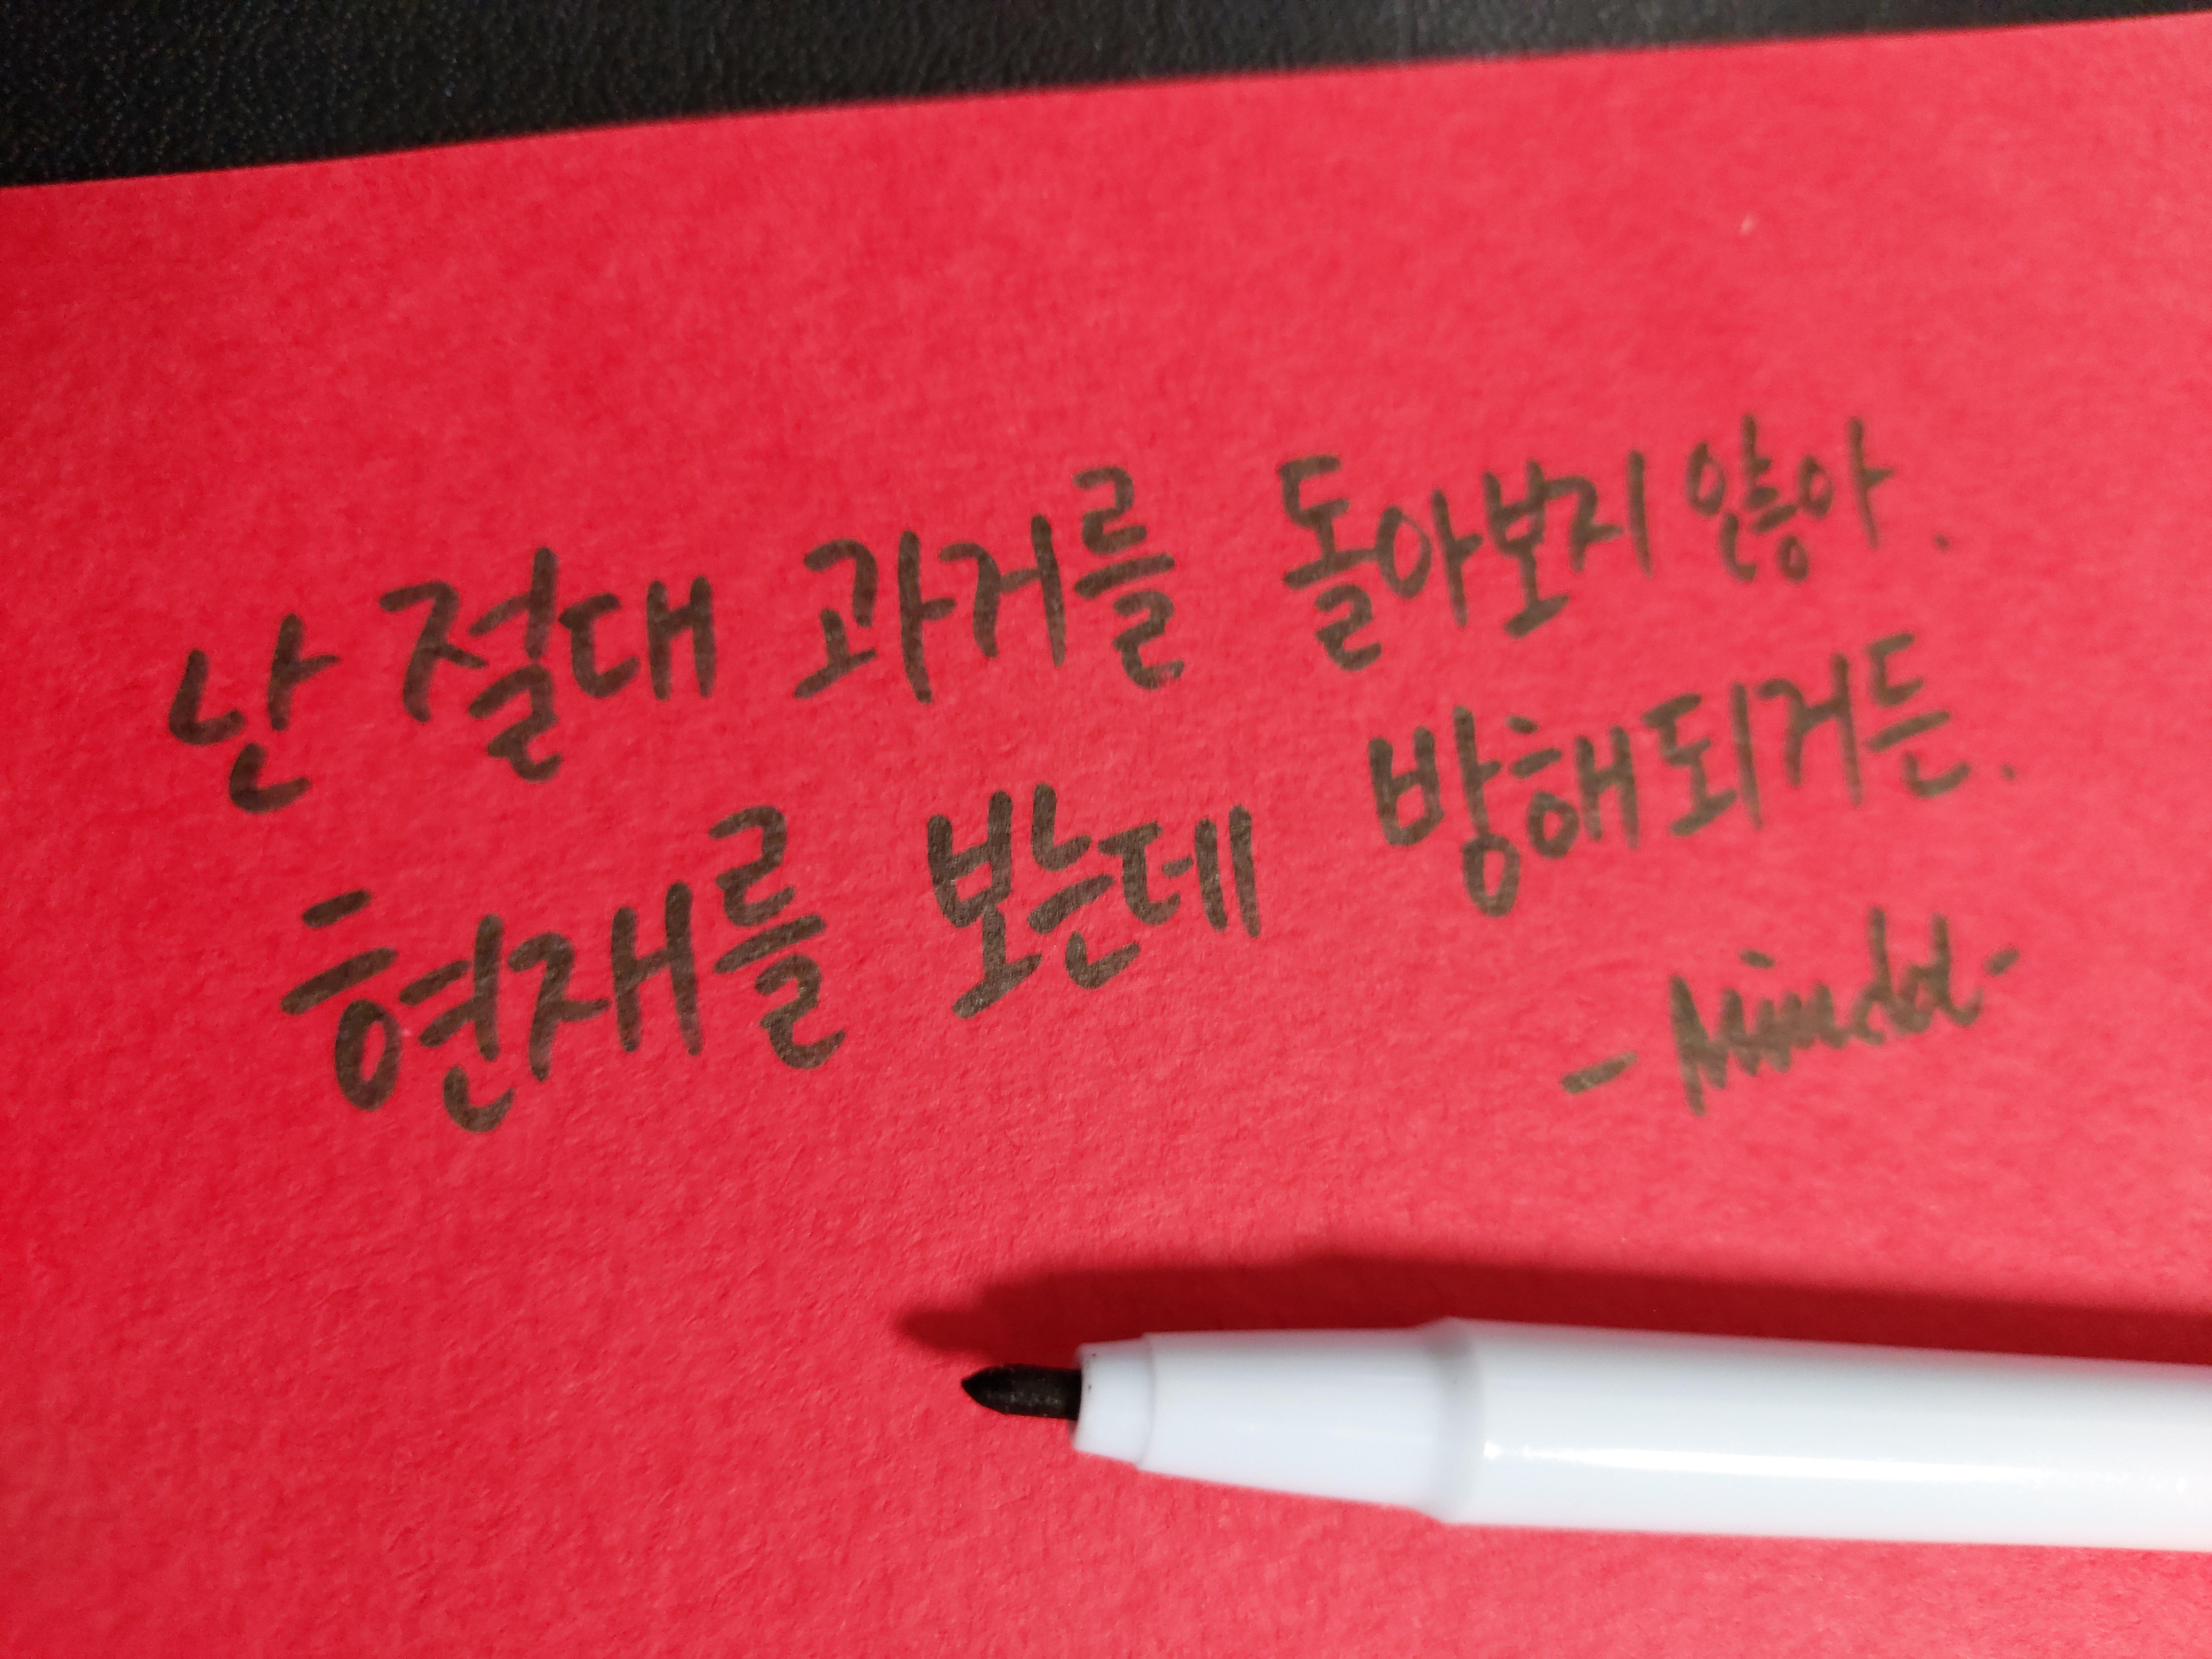 난 절대 과거를 돌아보지 않아.
현재를 보는데 방해되거든.